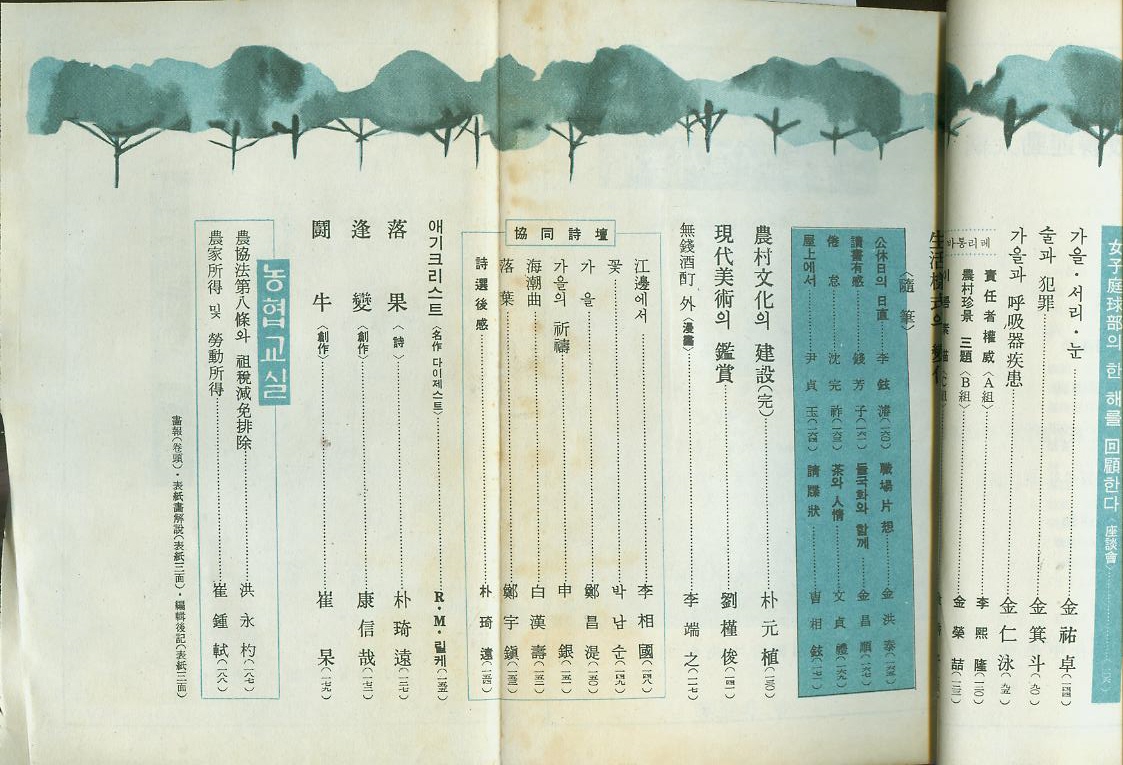 女子庭球部의 한 해를 回顧한다〈座談會〉
가을·서리·눈 金祐卓
술과 犯罪 金箕斗(九〇)
가을과 呼吸器疾患 金仁泳(九六)
메리통바
責任者權威〈A組〉 李熙隆(一三〇)
農村珍景 三題〈B組〉 金榮喆
〈隨筆〉
公休日의 日直 李鉉濬(一六〇)
職場片想 金洪泰
讀書有感 錢芳子(一六一)
들국화와 함께 金昌順(一六七)
倦怠 沈完祚
茶와 人情 文貞禮(一六九)
屋上에서 尹貞玉(一六四)
請牒狀 曺相鉉(一七一)
農村文化의 建設(完) 朴元植(一三〇)
現代美術의 鑑賞 劉槿俊(一四一)
無錢酒酊 外〈漫畵〉 李端之(一一七)
協同詩壇
江邊에서 李相國(一四八)
꽃 박남순(一四九)
가을 鄭昌湜(一五〇)
가을의 祈禱 申銀(一五一)
海潮曲 白漢壽
落葉 鄭宇鎭
詩選後感 朴琦遠(一五四)
애기크리스트〈名作 다이제스트〉 R·M·릴케
落果〈詩〉 朴琦遠(一二七)
逢變〈創作〉 康信哉(一七三)
鬪牛〈創作〉 崔杲(一七九)
농협교실
農協法第八條와 租稅減免排除 洪永杓(一八七)
農家所得 및 勞動所得 崔鍾軾(一八八)
畵報(卷頭)·表紙畵解說(表紙二面)·編輯後記(表紙三面)